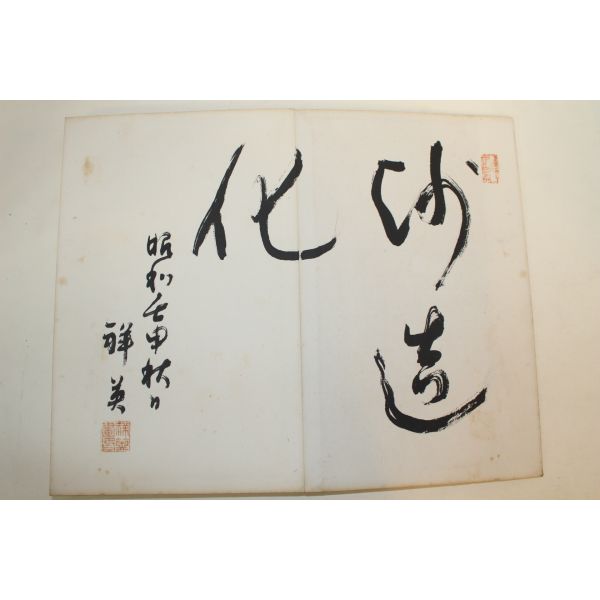 妙造
化
昭和壬申秋日
祥英